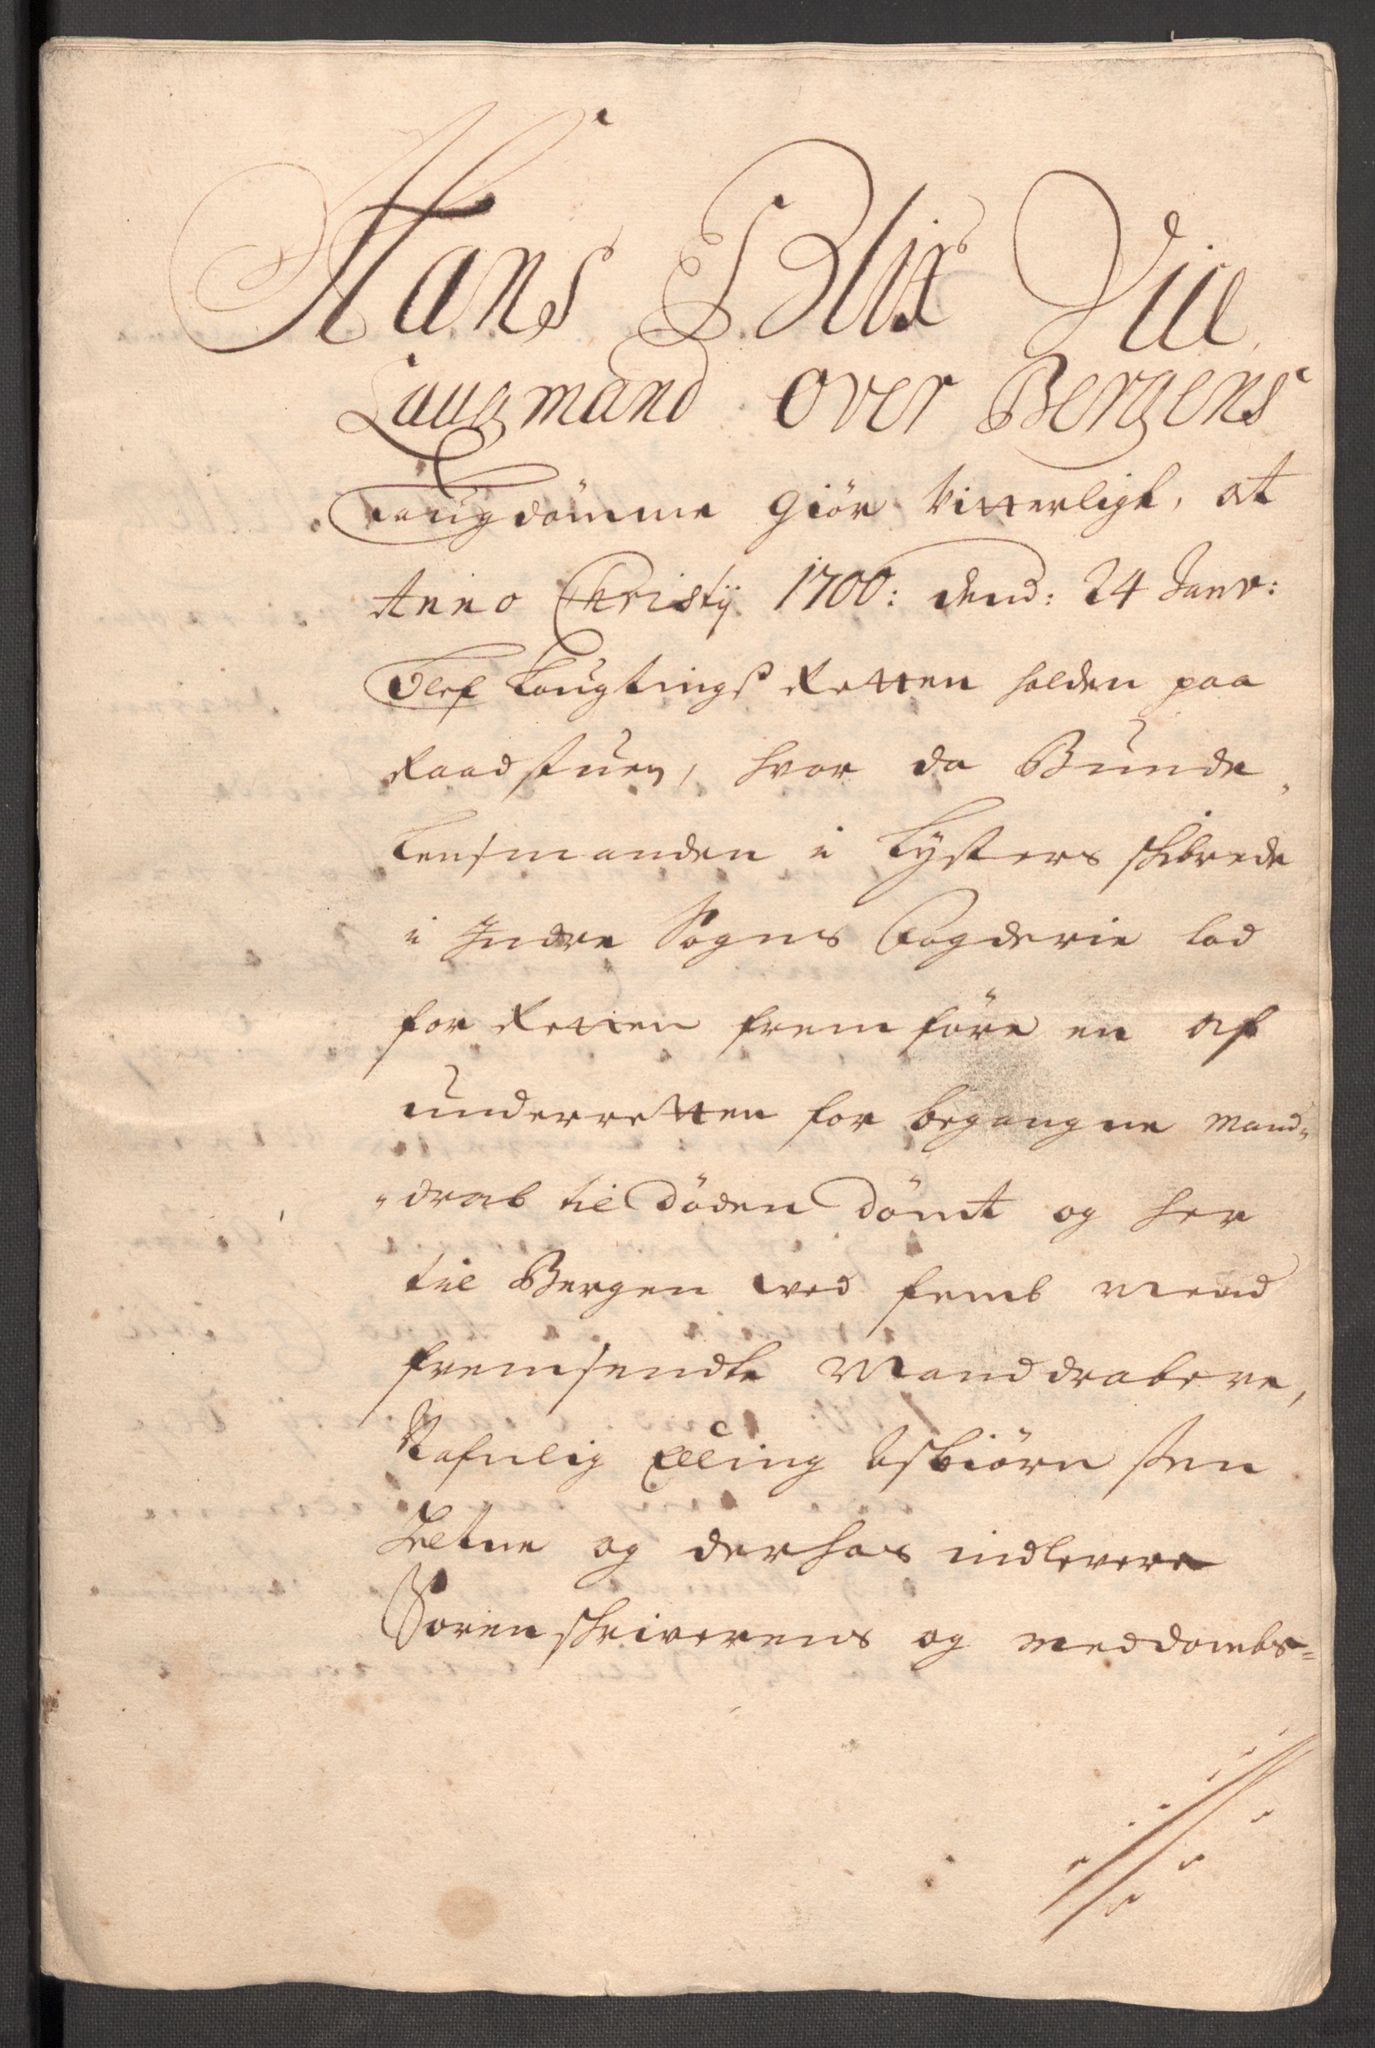 Hans Blix Vice
Laugmand over Bergens
Laugdömme Giör Vitterligt, at
Anno Christij 1700: dend: 24 Janv:
blef Laugtings Retten holden paa
Raadstuen, hvor da Bunde
Lensmanden i Lysters skibrede
i Indre Sogns Fogderie lod
for Retten fremföre en af
underretten for begangne Mand-
-drab til döden dömt og her
til Bergen ved femb Mend
fremsendte Manddrabere,
Nafnlig Elling Asbiörn sen
og derhos indlevere
Sorenskriverens og meddombs-